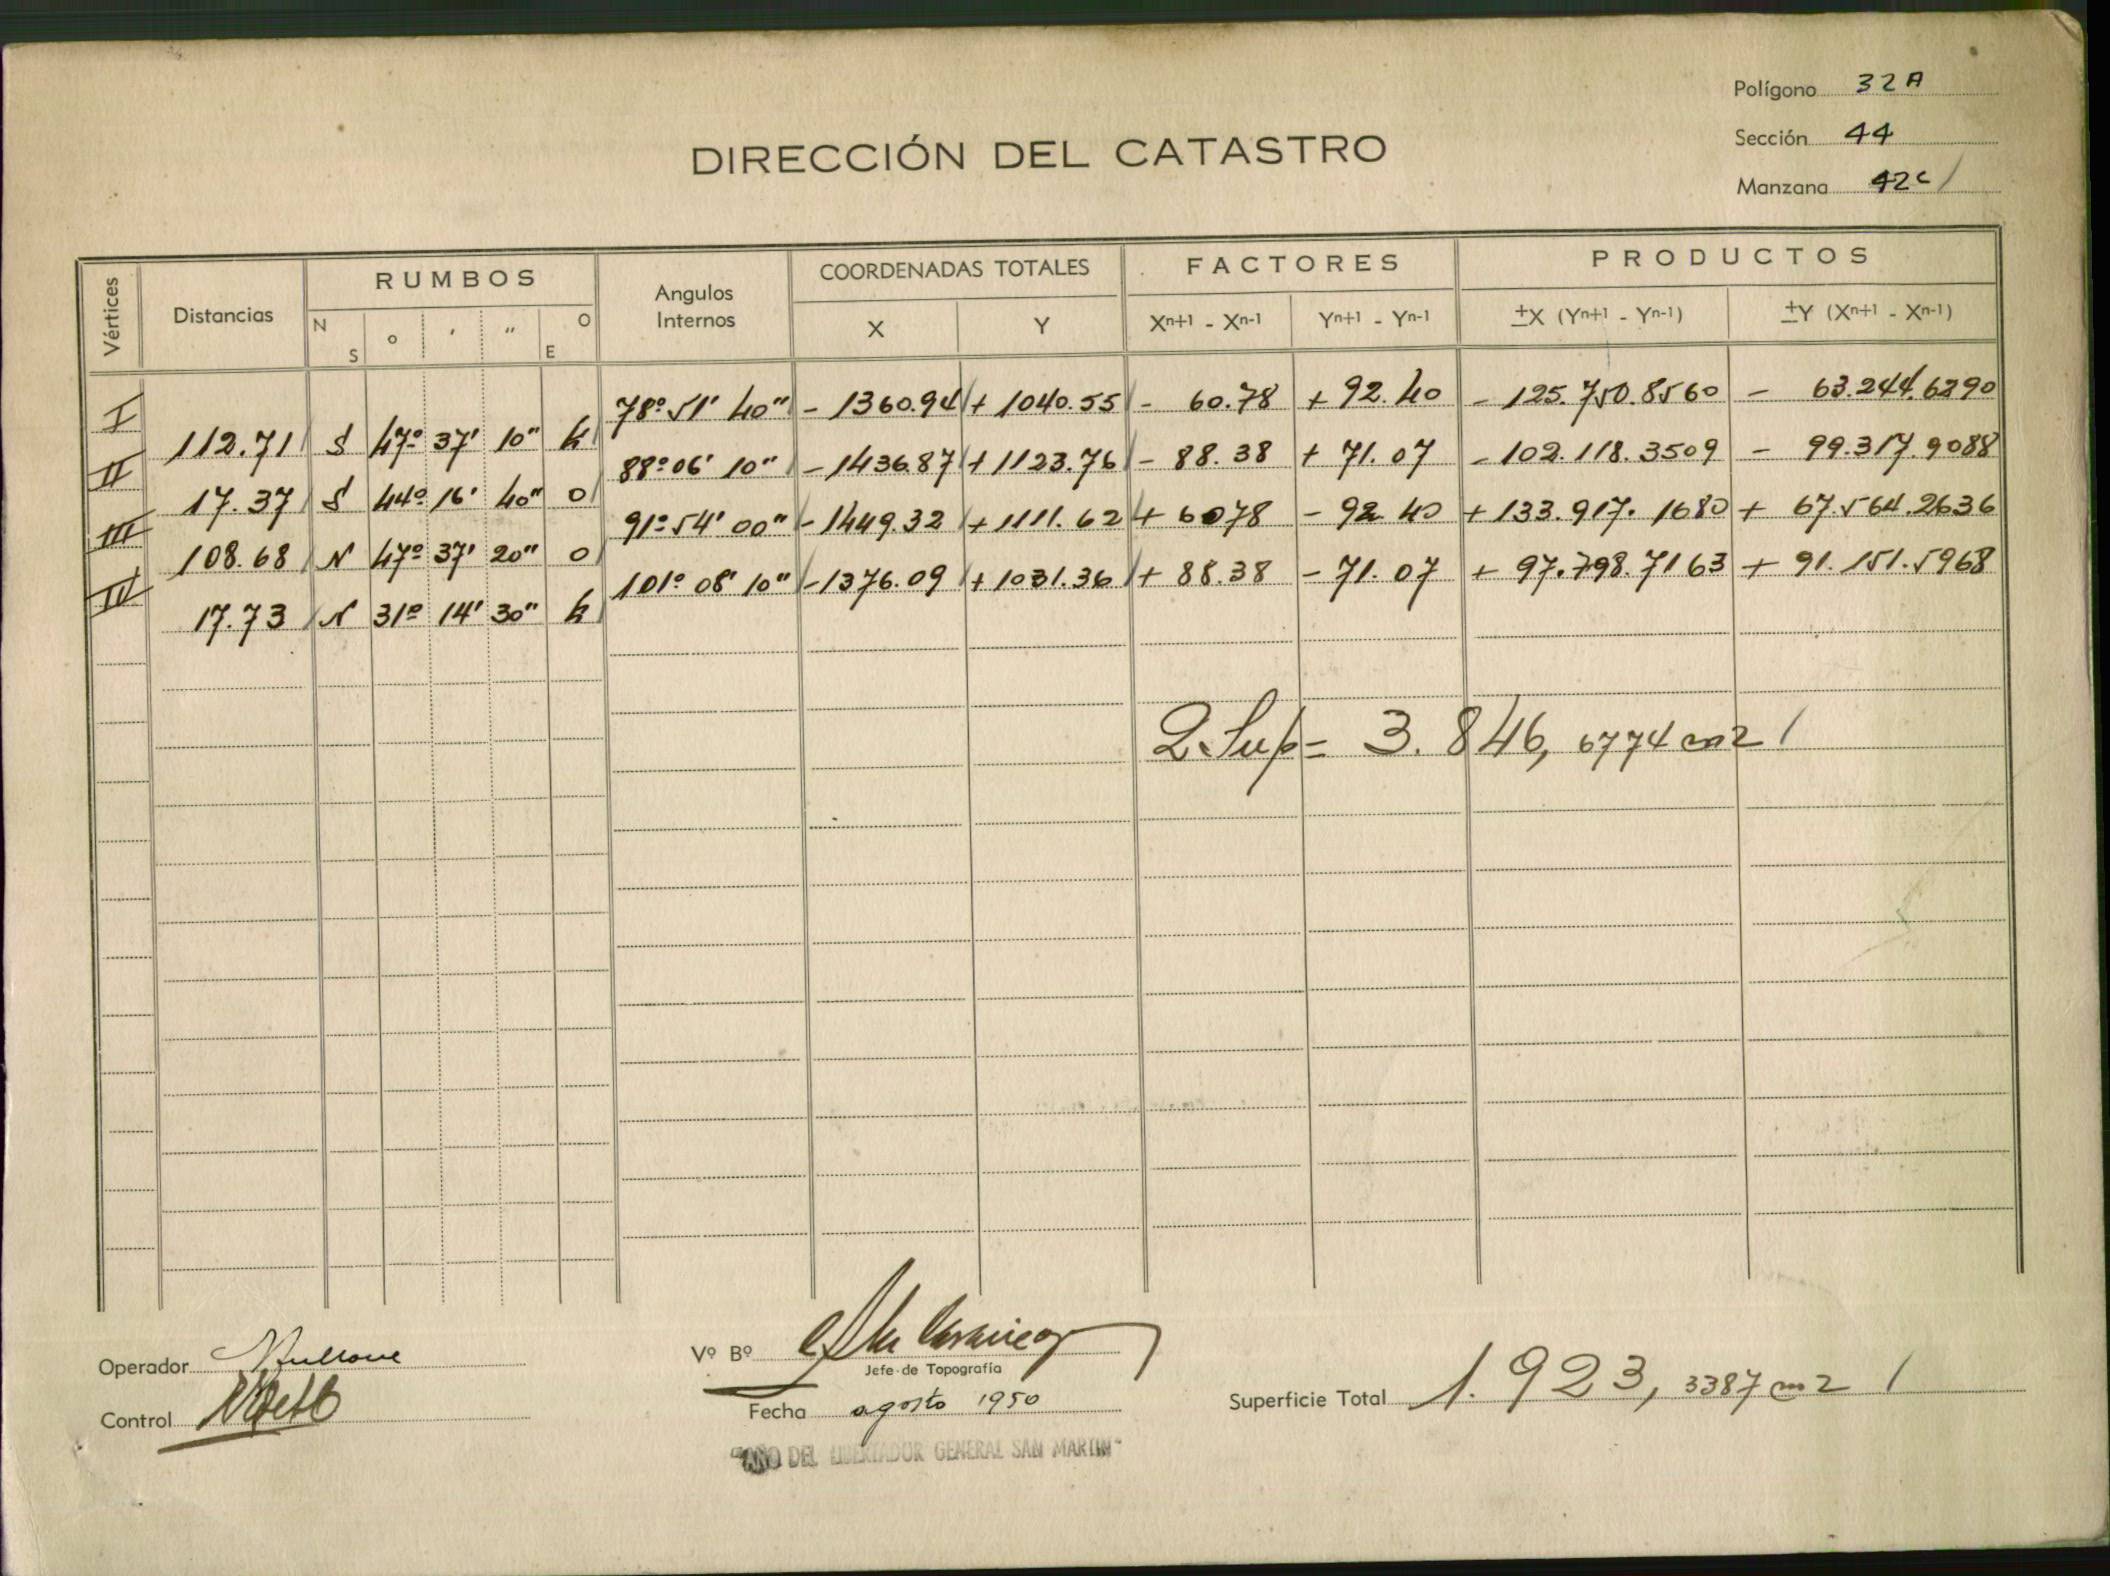 Polígono 32A
Sección 44
Manzana 42c /
DIRECCIÓN DEL CATASTRO
Vértices Distancias RUMBOS Angulos Internos COORDENADAS TOTALES FACTORES PRODUCTOS
N S o ' " O E X Y Xn+1 - Xn-1 Yn+1 - Yn-1 ±X (Yn+1 - Yn-1) ±Y (Xn+1 - Xn-1)
I 78º 51' 40" - 1360.94 + 1040.55 - 60.78 + 92.40 - 125.750.8560 - 63.244.6290
112.71 S 47º 37' 10" E
II 88º 06' 10" - 1436.87 + 1123.76 - 88.38 + 71.07 - 102.118.3509 - 99.317.9088
17.37 S 44º 16' 40" O
III 91º 54' 00" - 1449.32 + 1111.62 + 6078 - 92.40 + 133.917.1680 + 67.564.2636
108.68 N 47º 37' 20" O
IV 101º 08' 10" - 1376.09 + 1031.36 + 88.38 - 71.07 + 97.798.7163 + 91.151.5968
17.73 N 31º 14' 30" E
2 Sup = 3.846,6774 m2 /
Operador
Control
Vº Bº
Jefe de Topografía
Fecha agosto 1950
Superficie Total 1.923,3387 m2 /
"AÑO DEL LIBERTADOR GENERAL SAN MARTIN"